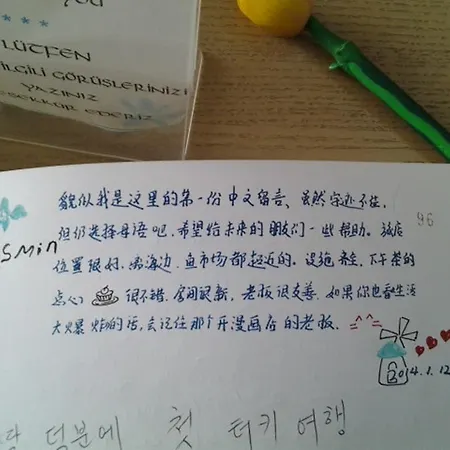 YOU
LÜTFEN
İLGİLİ GÖRÜŞLERİNİZİ
YAZINIZ
TEŞEKKÜR EDERİZ
貌似我是这里的第一份中文留言、虽然字迹不佳,
但仍选择母语吧,希望给未来的朋友们一些帮助。旅店
位置很好,离海边、鱼市场都挺近的。设施齐全,下午茶的
点心很不错,房间很新,老板很友善,如果你也看生活
大爆炸的话,会记住那个开漫画店的老板. =^^=
96
SMin
2014.1.12
덕분에 첫 터키 여행